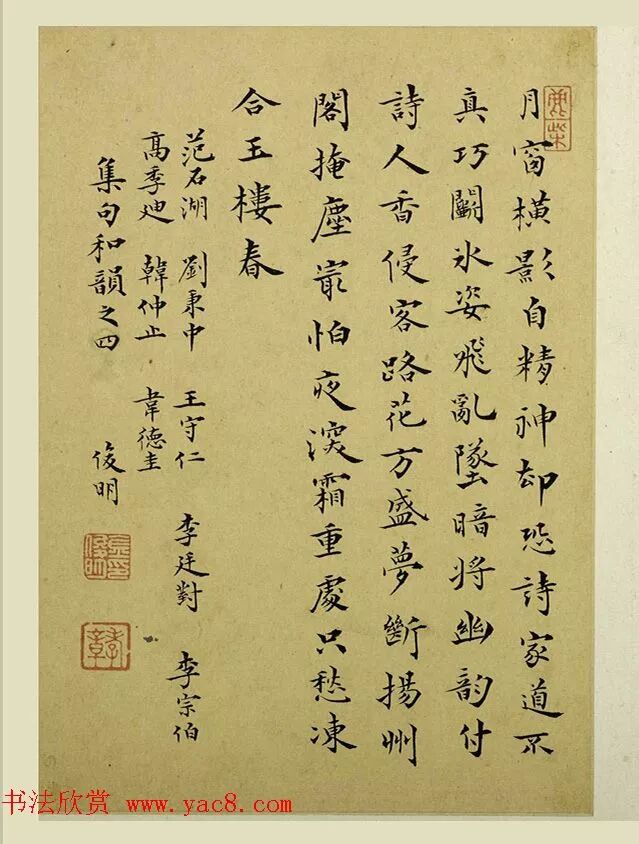 月窗橫影自精神却恐詩家道不
真巧鬭氷姿飛亂墜暗將幽韵付
詩人香侵客路花方盛夢斷揚州
閣掩塵㝡怕夜深霜重處只愁凍
合玉樓春
范石湖 劉秉中 王守仁 李廷對 李宗伯
高季迪 韓仲止 韋德圭
集句和韻之四 俊明
书法欣赏 www.yac8.com